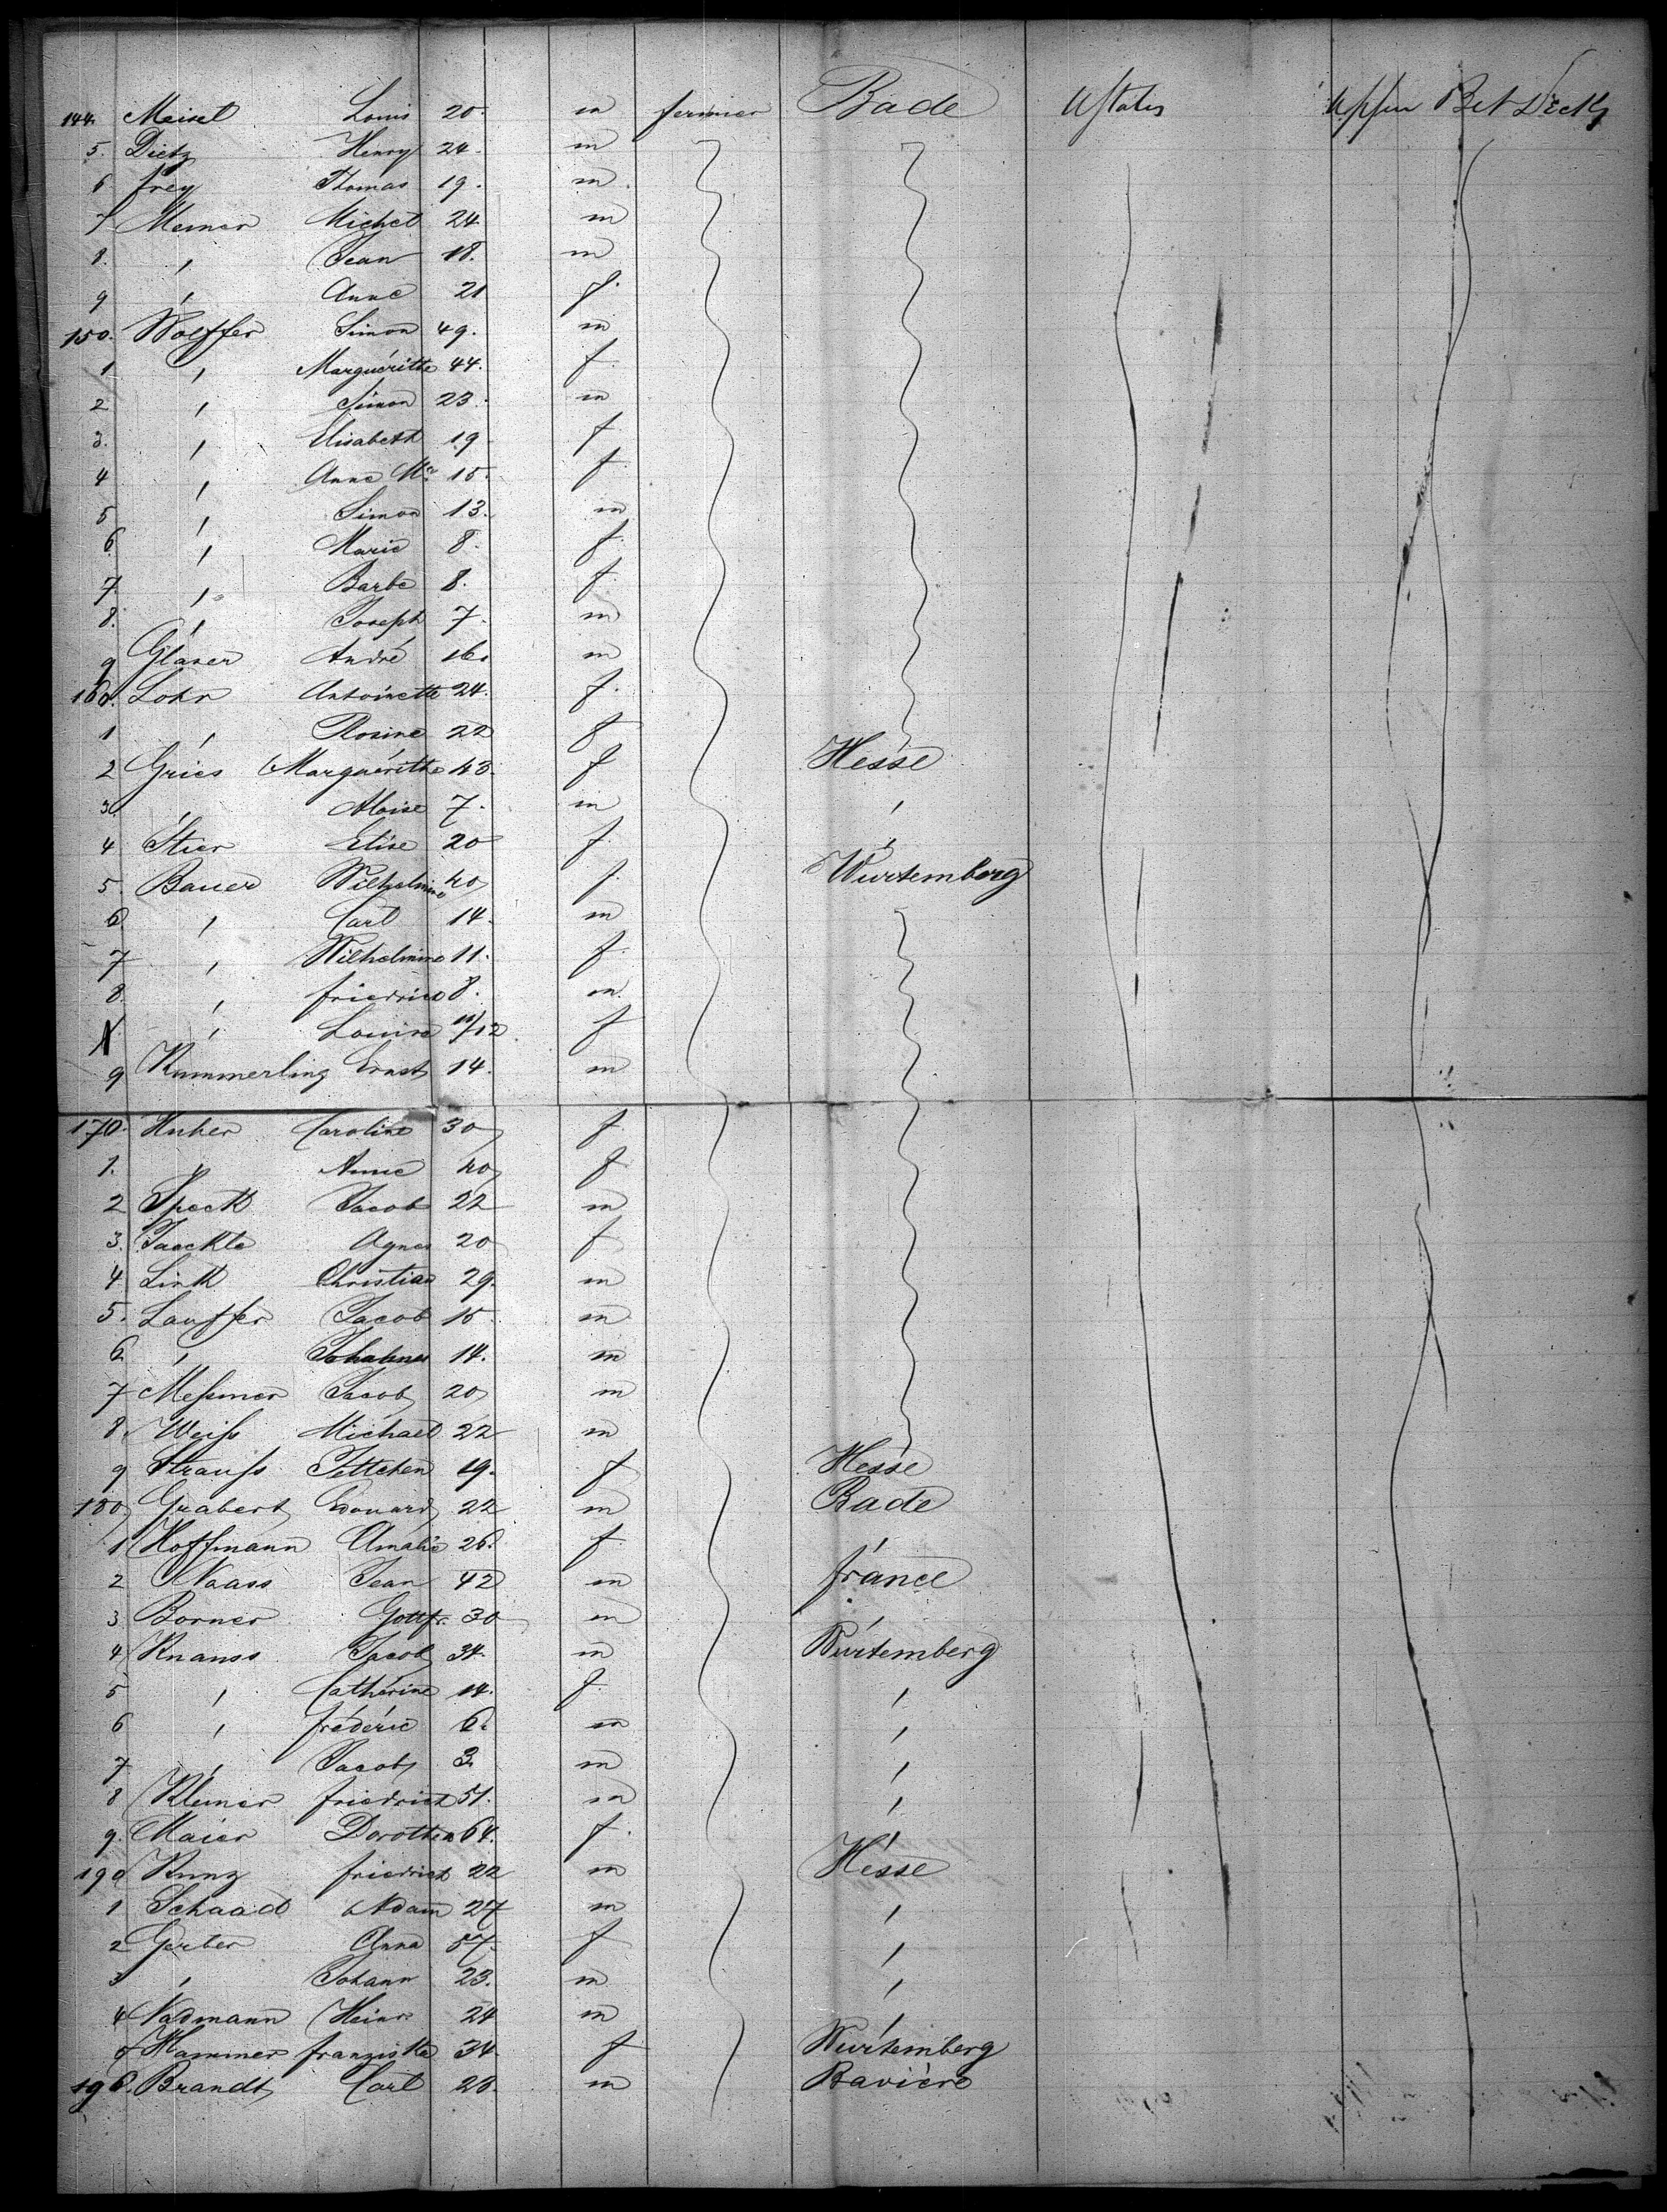 144. Meisel Louis 20. m fermier Bade UStates Upper Bet Deck
5. Dietz Henry 24. m
6 Frey Thomas 19. m
7 Menner Michel 24 m
8. " Jean 18. m
9 " Anne 21 f.
150. Wolffer Simon 49. m
1 " Marguéritte 44. f.
2 " Simon 23. m
3. " Elisabeth 19 f
4 " Anne Mie 15. f
5 " Simon 13. m
6. " Marie 8. f.
7. " Barbe 8. f.
8. " Joseph 7. m
9 Glaser André 16. m
160. Lohr Antoinette 24. f.
1 " Rosine 22 f
2 Gries Marguéritte 43. f Hesse
3. " Aloise 7. m "
4 Stier Elise 20 f. "
5. Bauer Wilhelmine 40 f. Würtemberg
6 " Carl 14. m
7 " Wilhelmine 11. f.
8. " Friedrich 8. m.
" Louise 11/12 f
9 Kummerling Ernst 14. m
170. Huber Caroline 30 f.
1. " Anne 40 f
2 Speck Jacob 22 m
3. Jaeckle Agnes 20 f
4 Link Christian 29. m
5. Lauffer Jacob 15 m
6 " Johannes 14. m
7 Messmer Jacob 20 m
8. Weiss Michael 22 m
9 Strauss Jettchen 19. f Hesse
180 Grabert Edouard 22 m Bade
1 Hoffmann Amalie 26. f. "
2 Naass Jean 42 m France
3 Borner Gottfr. 30 m "
4 Knauss Jacob 34. m Würtemberg
5 " Cathérine 14. f. "
6 " Frédéric 6. m "
7 " Jacob 3 m "
8 Klemer Friedrich 51. m "
9. Maier Dorothea 64. f. "
190 Kunz Friedrich 22 m Hesse
1 Schaad Adam 27 m "
2 Gerber Anna 57. f "
3 " Johann 23. m "
4 Nadmann Heinr. 24 m "
5 Hammer Franziska 34. f Würtemberg
196. Brandt Carl 28. m Bavière